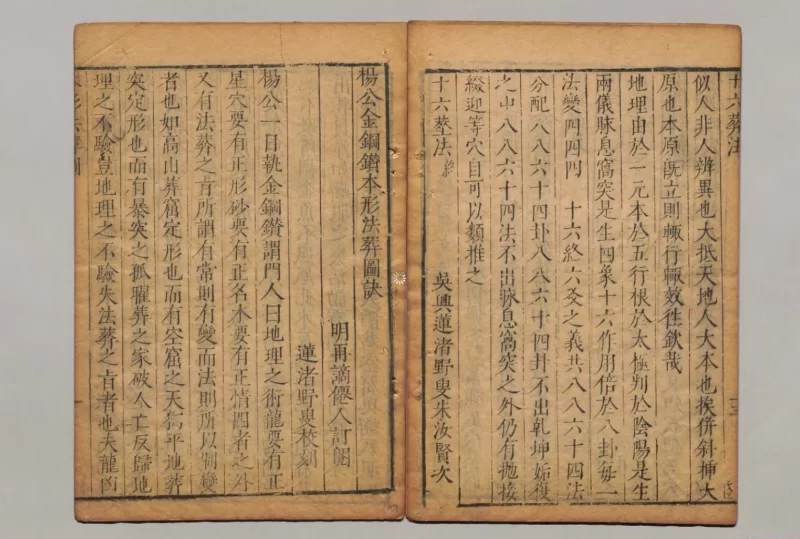 十六葬法
似人非人辨異也大抵天地人大本也挨併斜插大
原也本原既立則輒行輒效往欽哉
地理由於一元本於五行根於太極判於陰陽是生
兩儀脉息窩突是生四象十六作用倍於八卦每一
法變四四四 十六終六爻之義共八八六十四法
分配八八六十四卦八八六十四卦不出乾坤姤復
之中八八六十四法不出脉息窩突之外仍有拋接
綴迎等穴自可以類推之
吳興蓮渚野叟朱汝賢次
十六塟法終
楊公金鋼鑽本形法葬圖訣
明再謫僊人訂
蓮渚野叟校
楊公一日執金鋼鑽謂門人曰地理之術龍要有正
星穴要有正形砂要有正名水要有正情四者之外
又有法葬之旨所謂有常則有變而法則所以制變
者也如高山葬窟定形也而有空窟之天狗平地葬
突定形也而有暴突之孤曜葬之家破人亡反歸地
理之不驗豈地理之不驗失法葬之旨者也夫龍凶